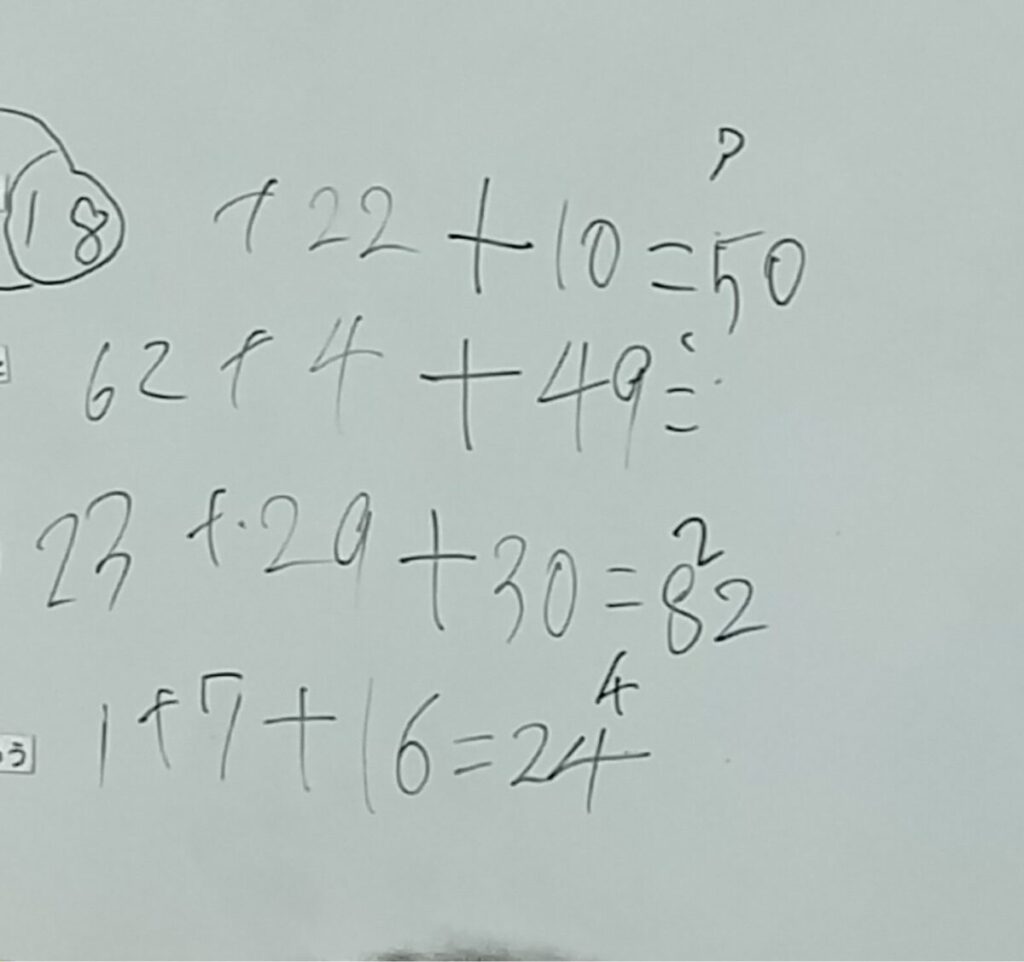 ?
18 + 22 + 10 = 50
62 + 4 + 49 =
23 + 29 + 30 = 82
2
1 + 7 + 16 = 24
4
う